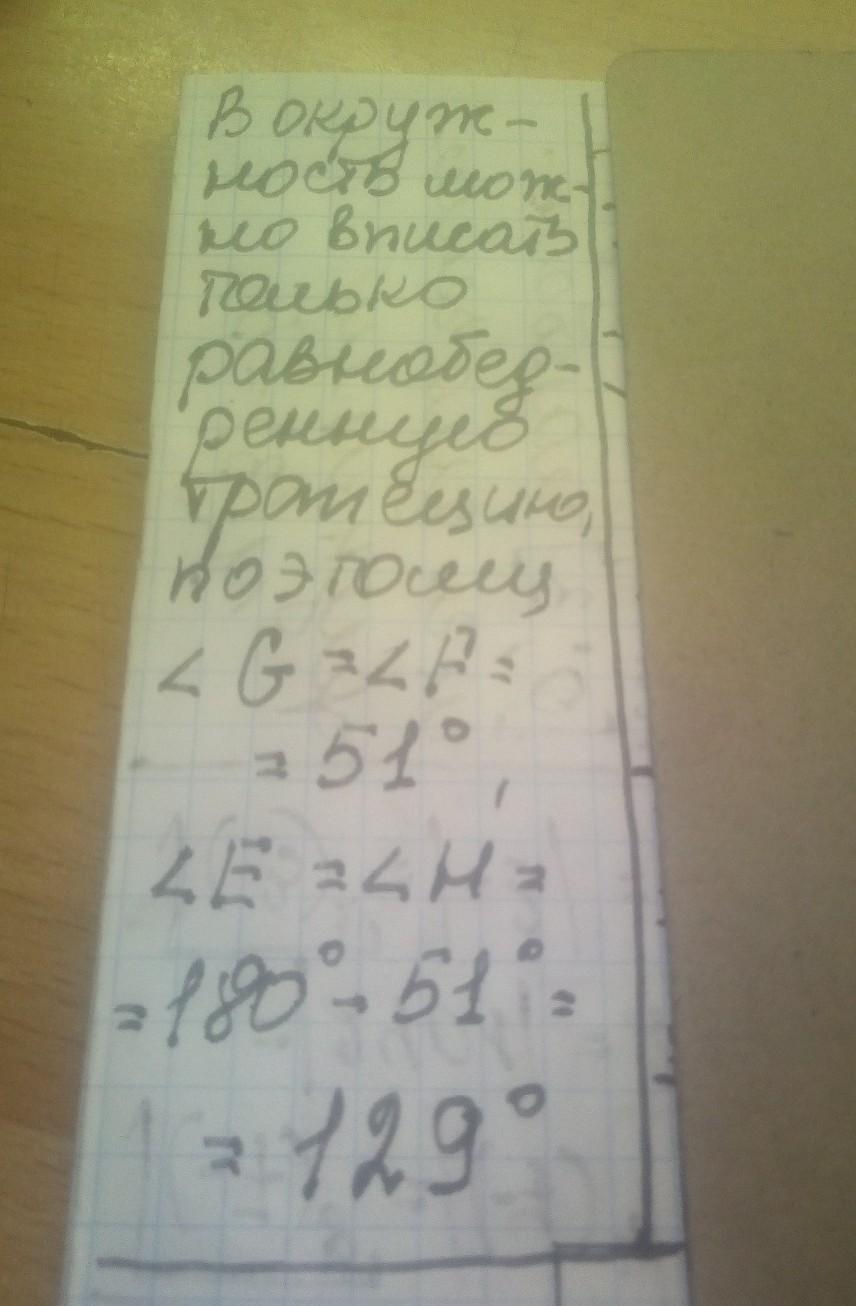 В окруж-
ность мож-
но вписать
только
равнобед-
ренную
трапецию,
поэтому
∠G = ∠F =
= 51°,
∠E = ∠H =
= 180° - 51° =
= 129°